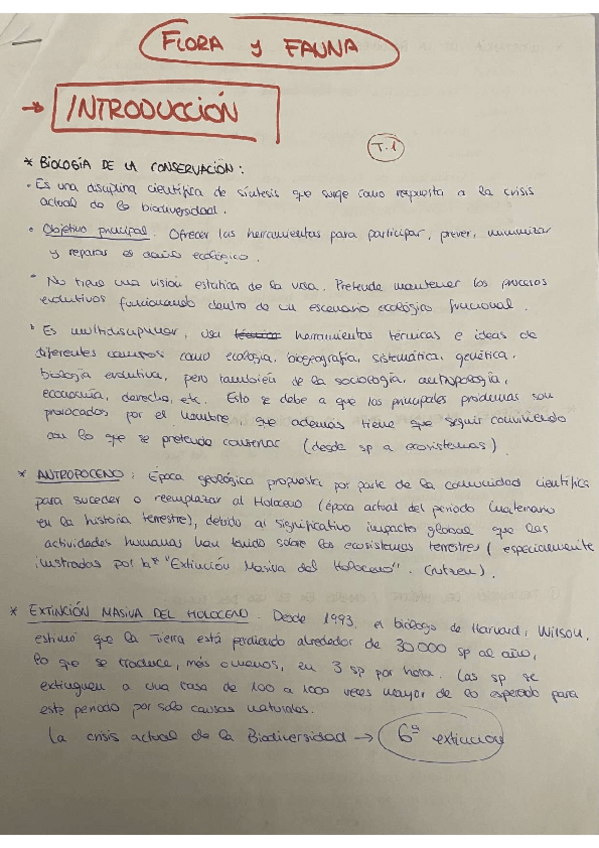 FLORA y FAUNA
→ INTRODUCCIÓN
T.1
* BIOLOGÍA DE LA CONSERVACIÓN:
· Es una disciplina científica de síntesis que surge como respuesta a la crisis
actual de la biodiversidad.
· Objetivo principal. Ofrecer las herramientas para participar, prever, minimizar
y reparar el daño ecológico.
· No tiene una visión estática de la vida. Pretende mantener los procesos
evolutivos funcionando dentro de un escenario ecológico funcional.
· Es multidisciplinar, usa herramientas técnicas e ideas de
diferentes campos como ecología, biogeografía, sistemática, genética,
biología evolutiva, pero también de la sociología, antropología,
economía, derecho, etc. Esto se debe a que los principales problemas son
provocados por el hombre que además tiene que seguir conviviendo
con lo que se pretende conservar (desde sp a ecosistemas).
* ANTROPOCENO: Época geológica propuesta por parte de la comunidad científica
para suceder o reemplazar al Holoceno (época actual del periodo Cuaternario
en la historia terrestre), debido al significativo impacto global que las
actividades humanas han tenido sobre los ecosistemas terrestres (especialmente
ilustradas por la "Extinción Masiva del Holoceno". (Crutzen).
* EXTINCIÓN MASIVA DEL HOLOCENO. Desde 1993, el biólogo de Harvard, Wilson,
estimó que la Tierra está perdiendo alrededor de 30000 sp al año,
lo que se traduce, más o menos, en 3 sp por hora. Las sp se
extinguen a una tasa de 100 a 1000 veces mayor de lo esperado para
este periodo por solo causas naturales.
La crisis actual de la Biodiversidad → 6ª extinción